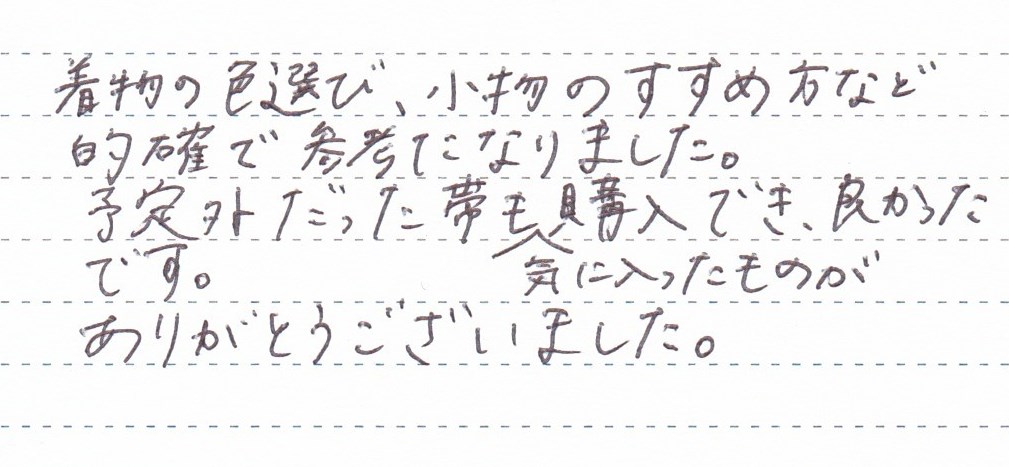 着物の色選び、小物のすすめ方など
的確で参考になりました。
予定外だった帯も購入でき、良かった
です。 気に入ったものが
ありがとうございました。